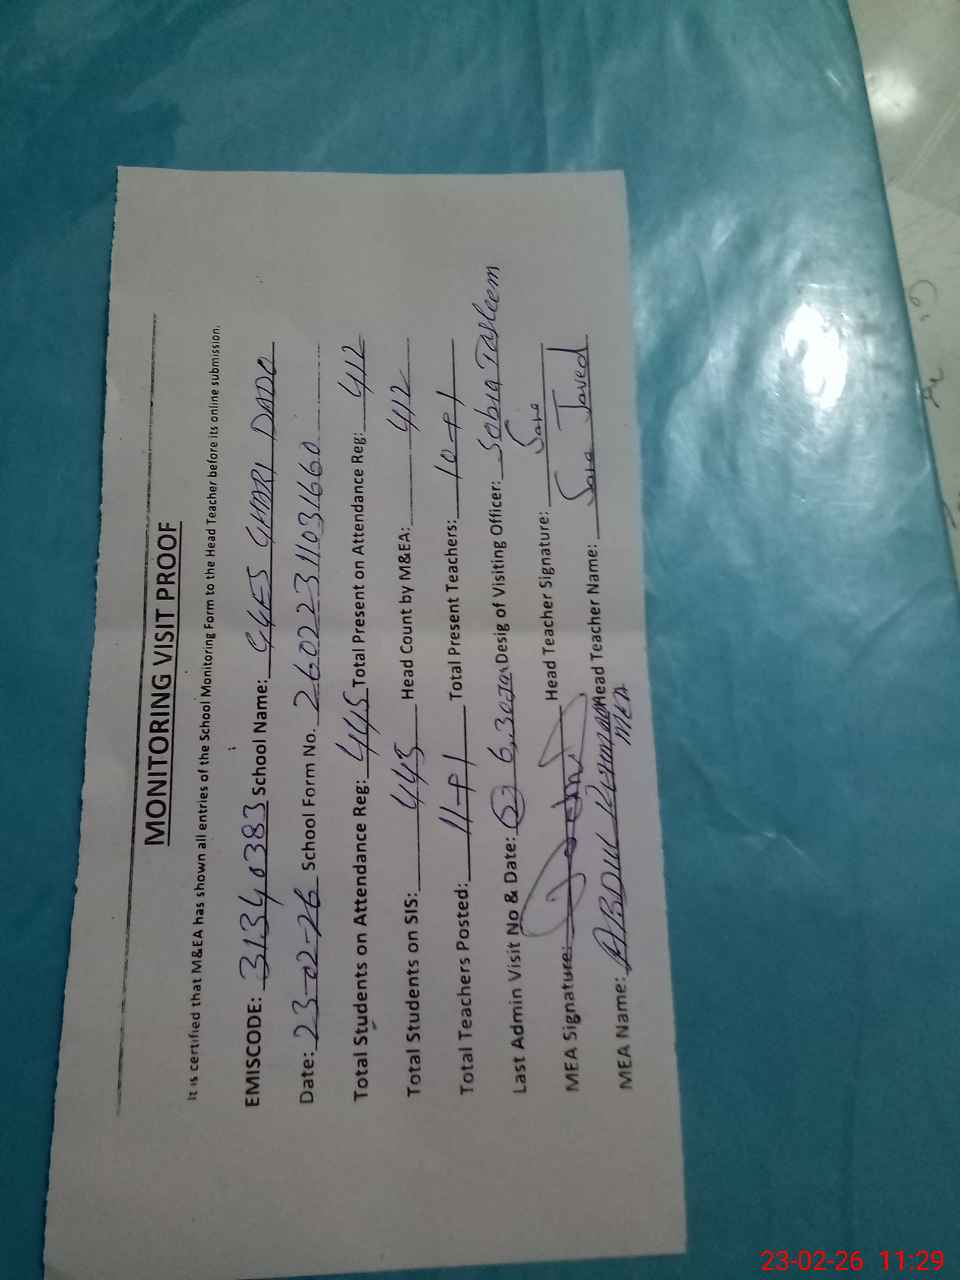 MONITORING VISIT PROOF
It is certified that M&EA has shown all entries of the School Monitoring Form to the Head Teacher before its online submission.
EMISCODE: 31340383 School Name: GGES GHARI DADO
Date: 23-02-26 School Form No. 26022311031660
Total Students on Attendance Reg: 445 Total Present on Attendance Reg: 412
Total Students on SIS: 445 Head Count by M&EA: 412
Total Teachers Posted: 11+1 Total Present Teachers: 10+1
Last Admin Visit No & Date: Desig of Visiting Officer: Sobia Tasleem
MEA Signature: Head Teacher Signature: Sara
MEA Name: ABDUL REHMAN Head Teacher Name: Sara Javed
MEA
23-02-26 11:29